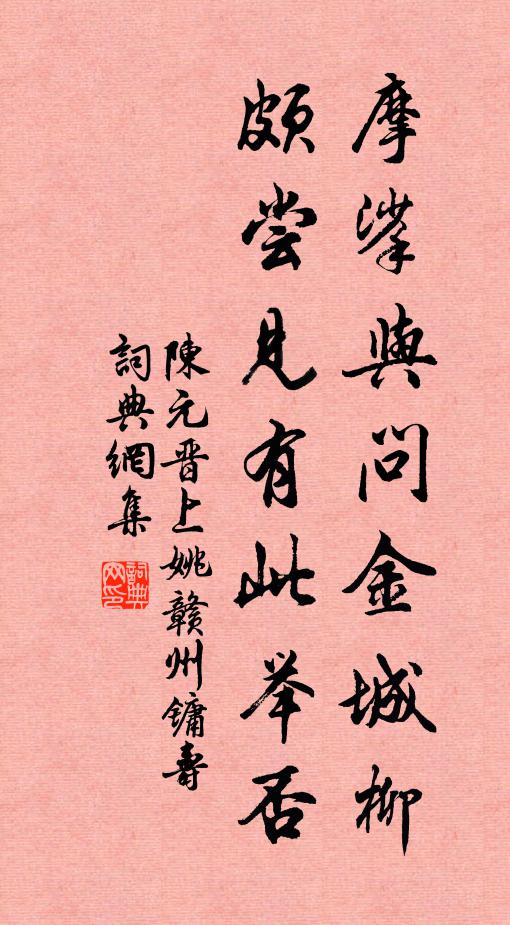 摩挲與問金城柳
頗嘗見有此举否
陳元晋上姚贛州鏞壽
詞典網集
詞典网印